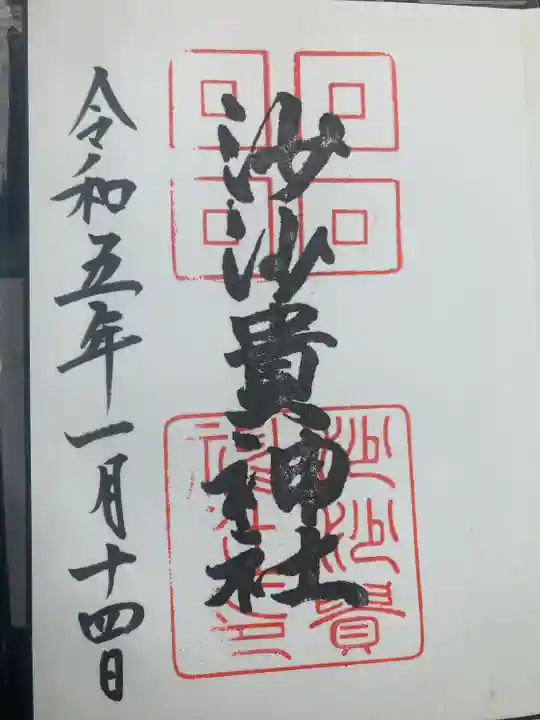 沙沙貴神社
沙沙貴
神社之印
令和五年一月十四日